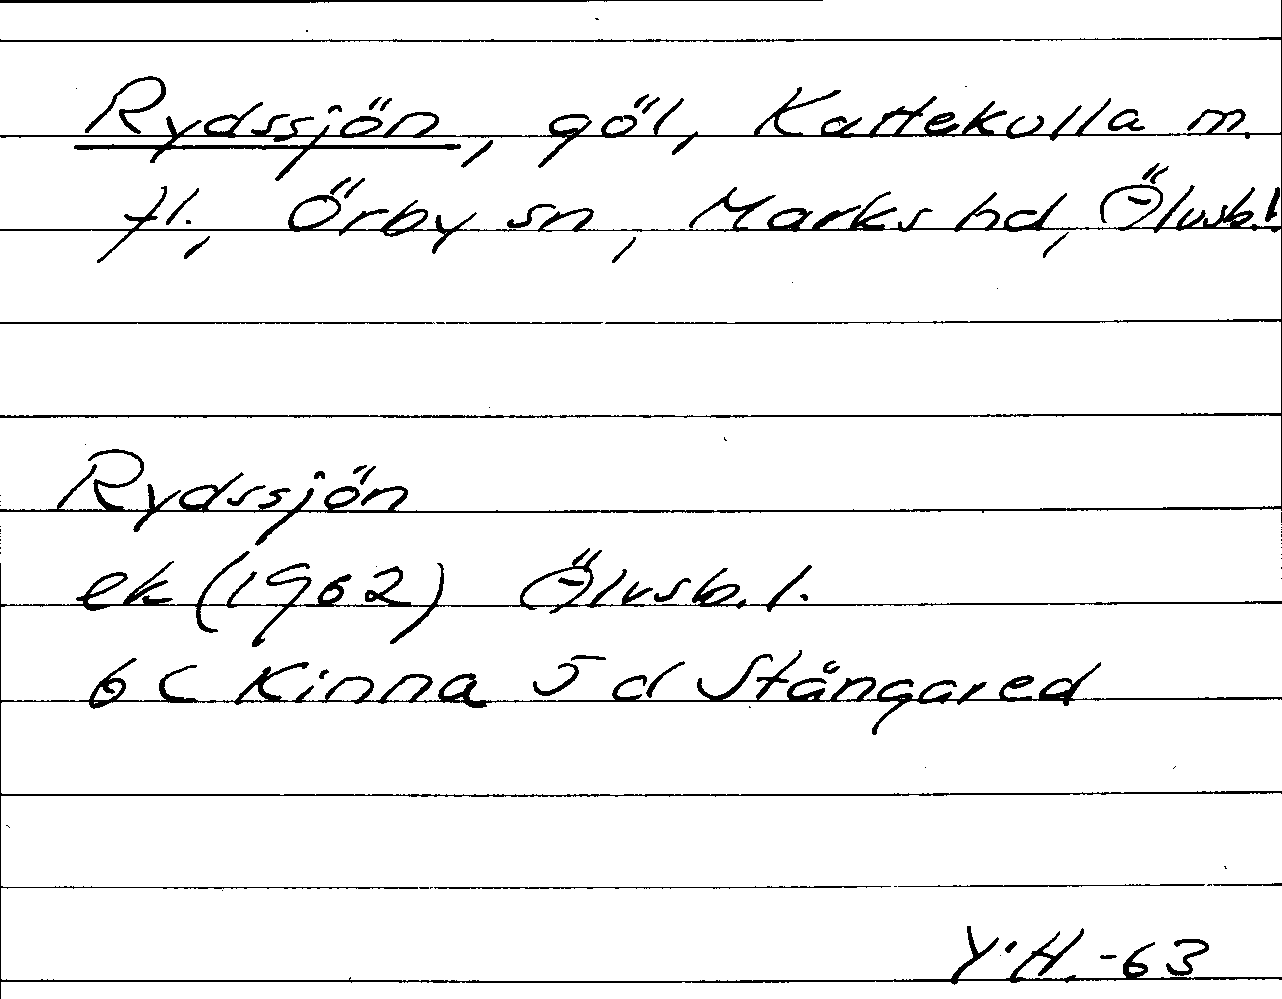 Rydssjön, göl, Kattekulla m.
fl., Örby sn, Marks hd, Älvsb.l
Rydssjön
ek (1962) Älvsb. l.
6 C Kinna 5 d Stångared
Y.H. -63